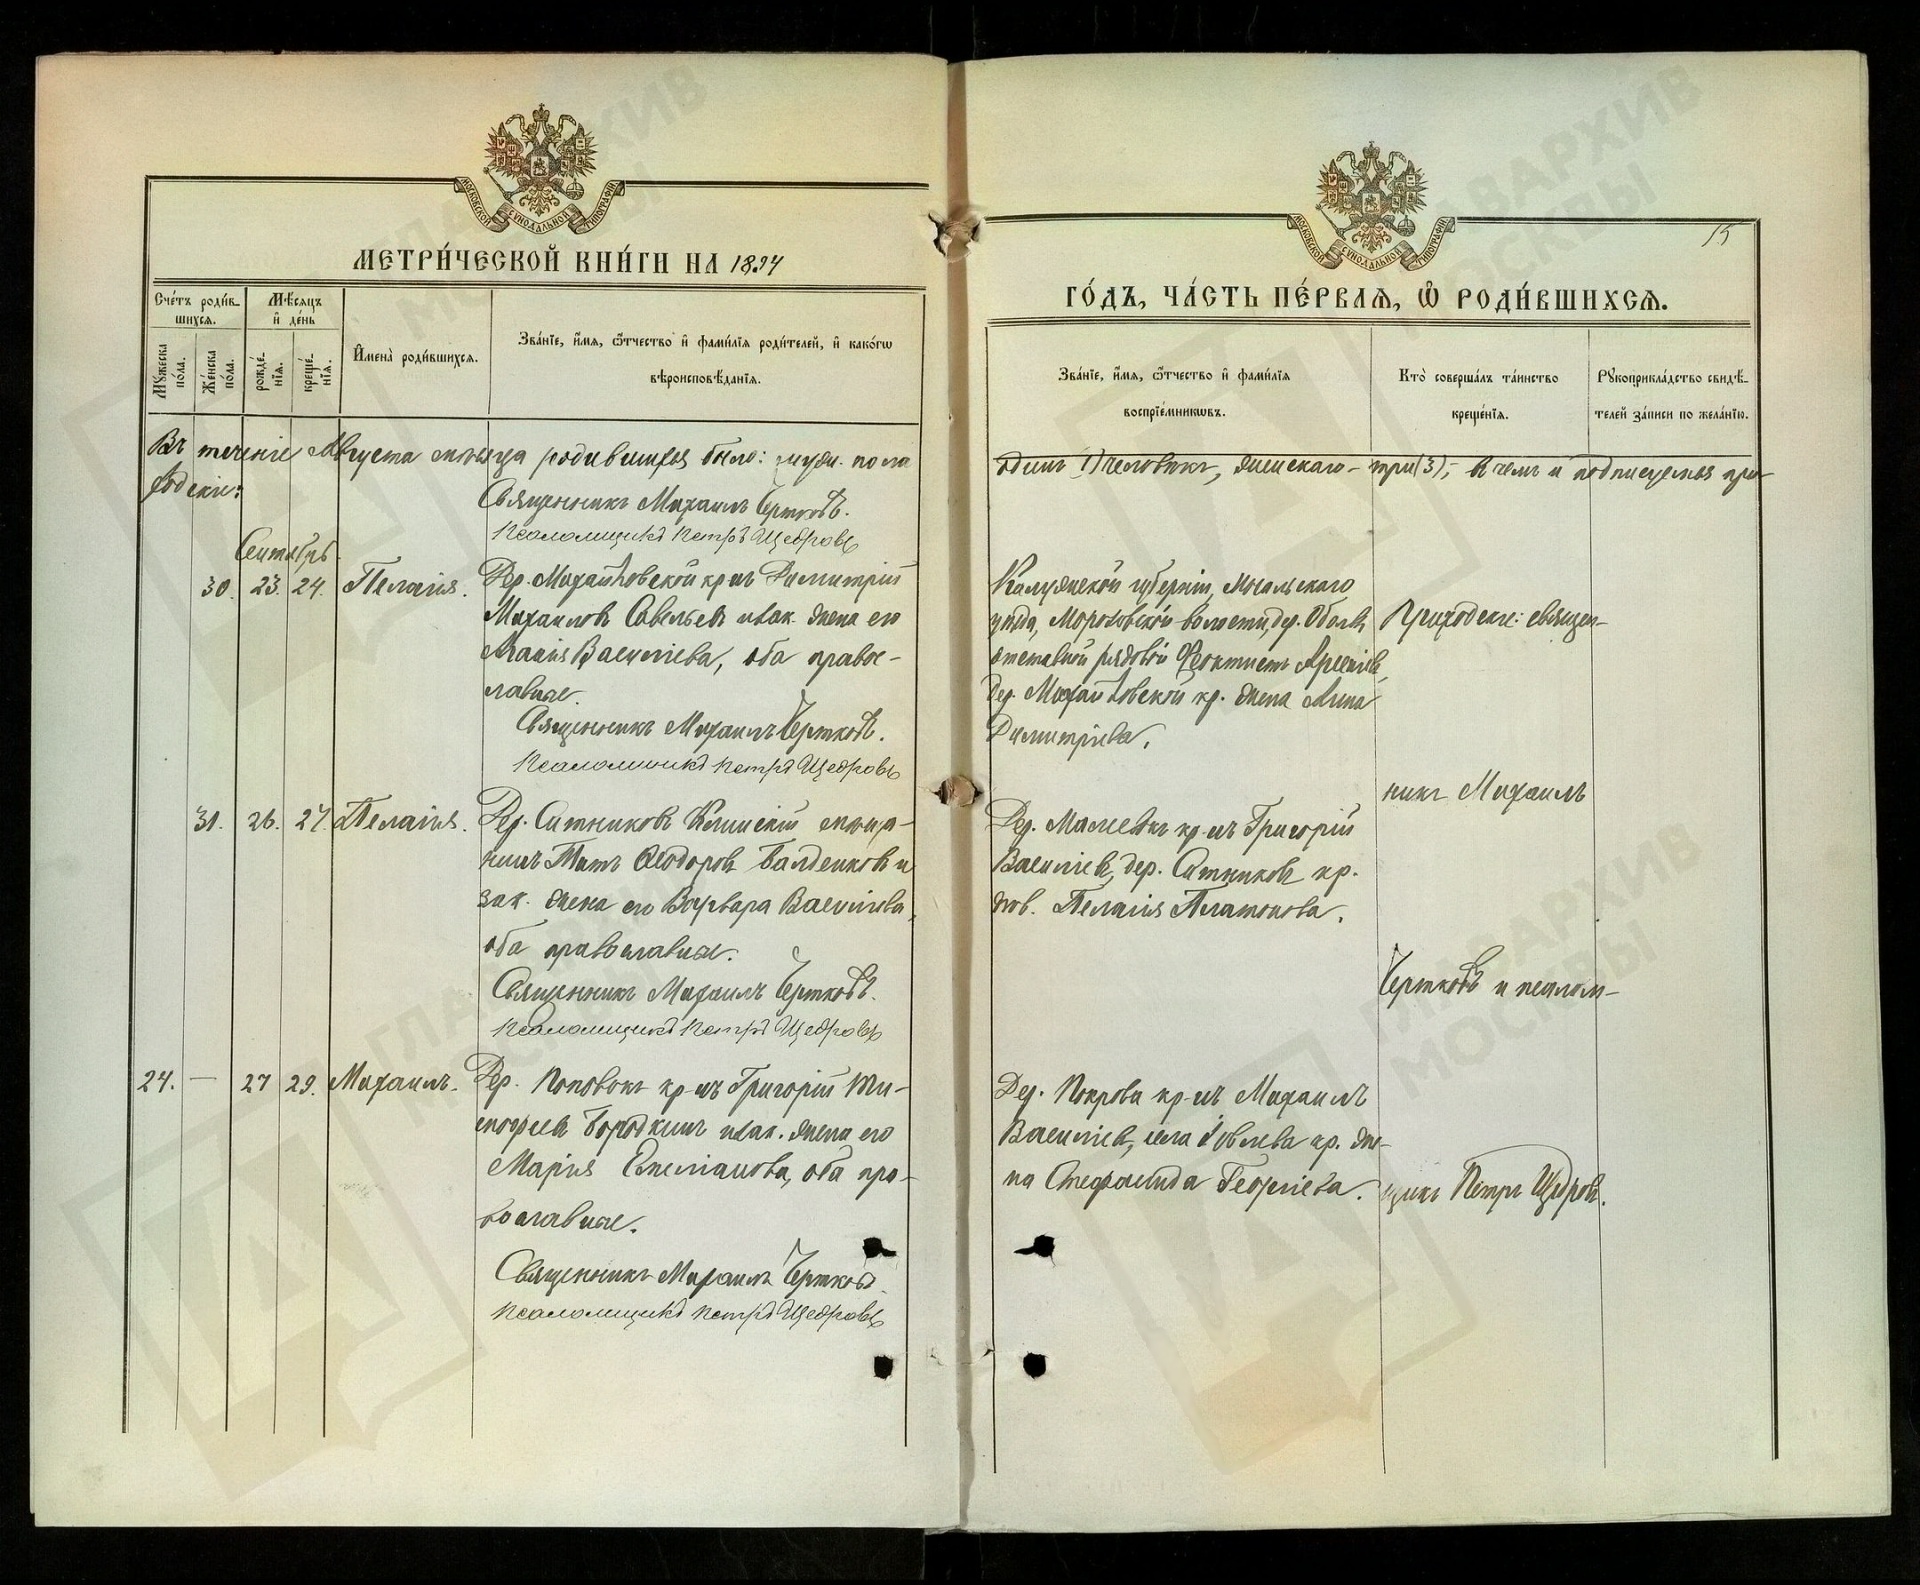 МОСКОВСКОЙ СѴНОДАЛЬНОЙ ТИПОГРАФІИ
МЕТРИ́ЧЕСКОЙ КНИ́ГИ НА 1894
Сче́тъ роди́в-
шихсѧ.
Мѣ́сѧцъ
и҆ де́нь
Мꙋ́жеска
по́ла.
Же́нска
по́ла.
рожде́-
нїѧ.
креще́-
нїѧ.
И҆мена̀ роди́вшихсѧ.
Зва́нїе, и҆́мѧ, ѻ҆́тчество и҆ фами́лїѧ роди́телей, и҆ како́гѡ
вѣроисповѣ́данїѧ.
Въ теченіе Августа мѣсяца родившихся было: муж. пола
Священникъ Михаилъ Чертковъ.
Псаломщикъ Петръ Щедровъ
Сентябрь
30. 23. 24. Пелагія. Дер. Михайловской кр-нъ Димитрій
Михаиловъ Савельевъ и зак. жена его
Васильева, оба право-
славные.
Священникъ Михаилъ Чертковъ.
Псаломщикъ Петръ Щедровъ
31. 26. 27. Пелагія. Дер. Ситниковъ Клинскій мѣща-
нинъ Титъ Ѳеодоровъ и
зак. жена его Варвара Васильева,
оба православные.
Священникъ Михаилъ Чертковъ.
Псаломщикъ Петръ Щедровъ
24. — 27 29. Михаилъ. Дер. Поповокъ кр-нъ Григорій Ти-
мофеевъ Бородкинъ и зак. жена его
Марія Емеліанова, оба пра-
вославные.
Священникъ Михаилъ Чертковъ.
Псаломщикъ Петръ Щедровъ
15
МОСКОВСКОЙ СѴНОДАЛЬНОЙ ТИПОГРАФІИ
ГО́ДЪ, ЧА́СТЬ ПЕ́РВАѦ, Ѽ РОДИ́ВШИХСѦ.
Зва́нїе, и҆́мѧ, ѻ҆́тчество и҆ фами́лїѧ
воспрїе́мникѡвъ.
Кто̀ соверша́лъ та́инство
креще́нїѧ.
Рꙋкоприкла́дство свидѣ́-
телей за́писи по жела́нїю.
одинъ (1) человѣкъ, женскаго – три (3), въ чемъ и подписуемся при-
Калужской губерніи, Мосальскаго
уѣзда, волости, дер.
отставной рядовой Ѳеоктистъ
дер. Михайловской кр. жена Анна
Димитріева.
Приходскіе: священ-
никъ Михаилъ
Дер. кр-нъ Григорій
Васильевъ, дер. Ситниковъ кр.
дѣв. Пелагія Платонова.
Чертковъ и псалом-
Дер. Покрова кр-нъ Михаилъ
Васильевъ, села кр. же-
на Стефанида Георгіева.
щикъ Петръ Щедровъ.
ГЛАВАРХИВ
МОСКВЫ